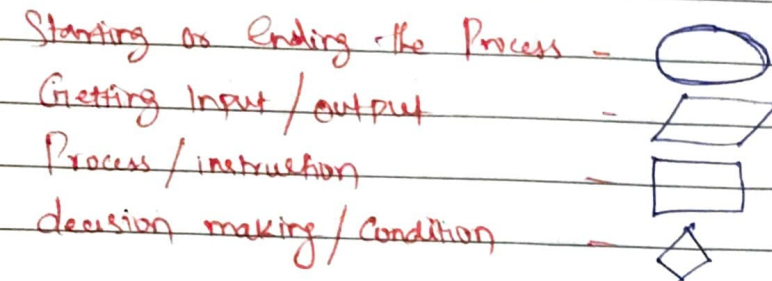 Starting or Ending the Process -
Getting Input / output -
Process / instruction -
decision making / Condition -